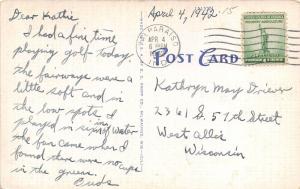 Dear Kathie
I had a fine time
playing golf today.
The fairways were a
little soft and in
the low spots I
played in six in of water
The fun came when I
found there were no cups
in the greens.
April 4, 1942
PARAISO
APR 4
POST CARD
Kathryn May Driver
2361 S. 57th Street
West Allis
Wisconsin